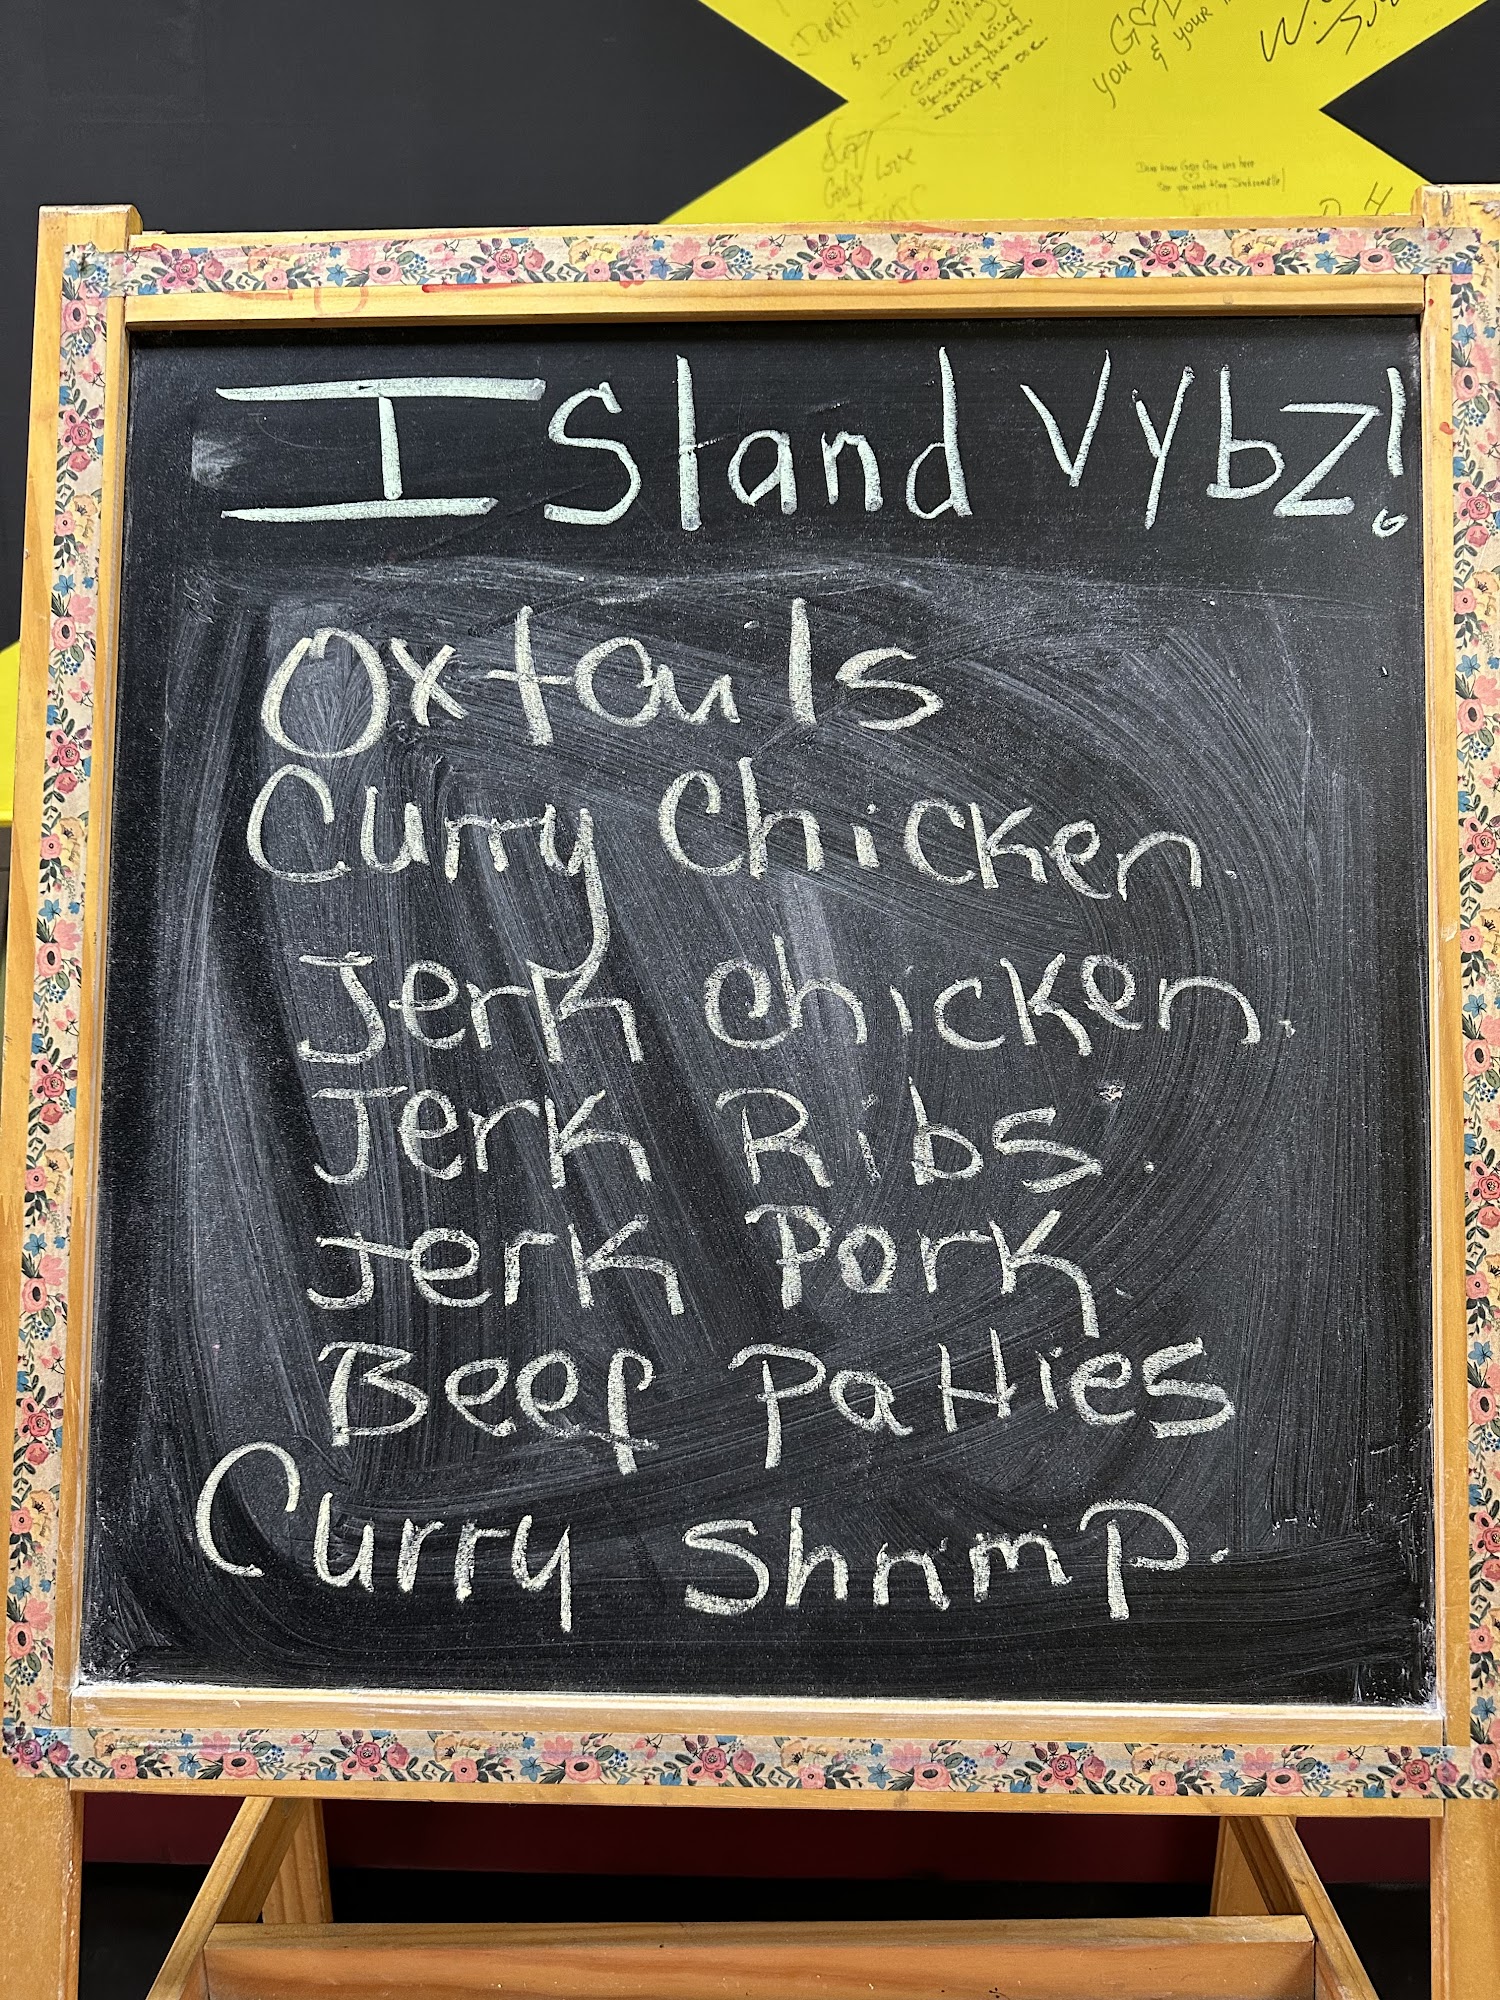 5-23-2020
GOD
YOU & YOUR
God's Love
Island Vybz!
Oxtails
Curry Chicken.
Jerk Chicken.
Jerk Ribs.
Jerk Pork.
Beef Patties
Curry Shrimp.